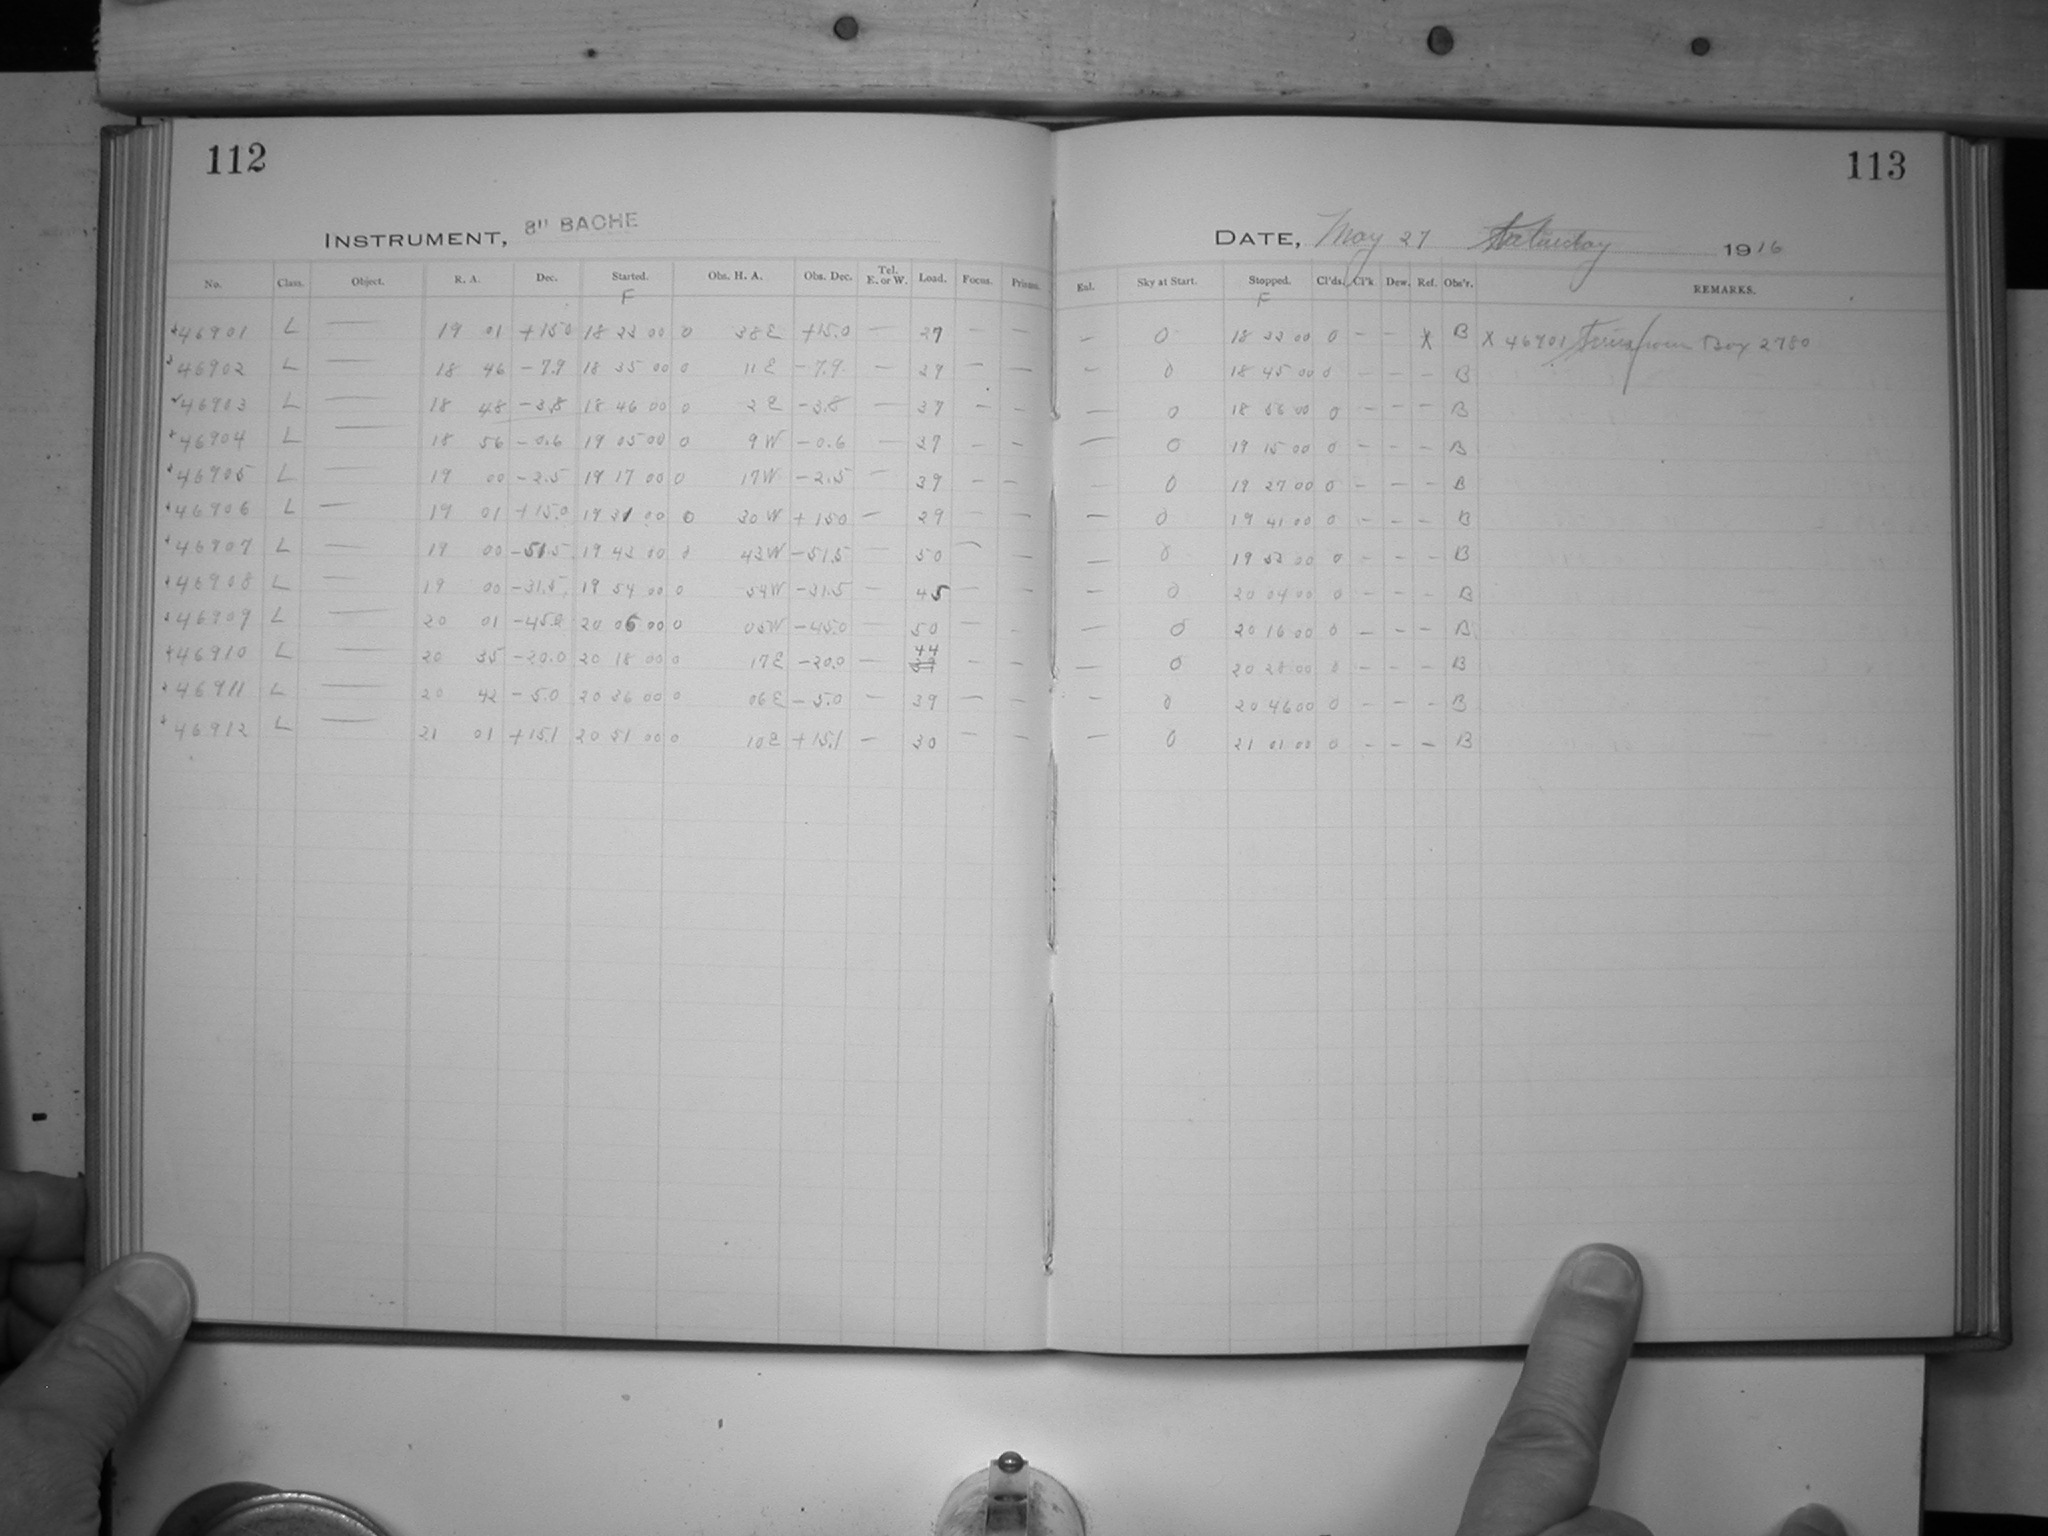 112
113
INSTRUMENT, 8" BACHE
DATE, May 27 Saturday 1916
No. Class. Object. R. A. Dec. Started. Obs. H. A. Obs. Dec. Tel. E. or W. Load. Focus. Prisms. Enl. Sky at Start. Stopped. Cl'ds. Cl'k Dew. Ref. Obs'r. REMARKS.
F F
46901 L — 19 01 +15.0 18 23 00 0 38 E +15.0 — 27 — — — 0 18 33 00 0 — — X B X 46901 from Box 2780
46902 L — 18 46 -7.9 18 35 00 0 11 E -7.9 — 37 — — — 0 18 45 00 0 — — — B
46903 L — 18 48 -3.8 18 46 00 0 2 E -3.8 — 37 — — — 0 18 56 00 0 — — — B
46904 L — 18 56 -0.6 19 05 00 0 9 W -0.6 — 37 — — — 0 19 15 00 0 — — — B
46905 L — 19 00 -2.5 19 17 00 0 17 W -2.5 — 39 — — — 0 19 27 00 0 — — — B
46906 L — 19 01 +15.0 19 31 00 0 30 W +150 — 29 — — — 0 19 41 00 0 — — — B
46907 L — 19 00 -51.5 19 43 00 0 43 W -51.5 — 50 — — — 0 19 53 00 0 — — — B
46908 L — 19 00 -31.5 19 54 00 0 54 W -31.5 — 45 — — — 0 20 04 00 0 — — — B
46909 L — 20 01 -45.0 20 06 00 0 05 W -45.0 — 50 — — — 0 20 16 00 0 — — — B
46910 L — 20 35 -20.0 20 18 00 0 17 E -20.0 — 44 — — — 0 20 28 00 0 — — — B
46911 L — 20 42 -5.0 20 36 00 0 06 E -5.0 — 39 — — — 0 20 46 00 0 — — — B
46912 L — 21 01 +15.1 20 51 00 0 10 E +15.1 — 30 — — — 0 21 01 00 0 — — — B